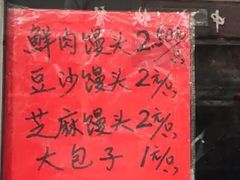 鲜肉馒头2.50元/只
豆沙馒头2元/只
芝麻馒头2元/只
大包子1元/只